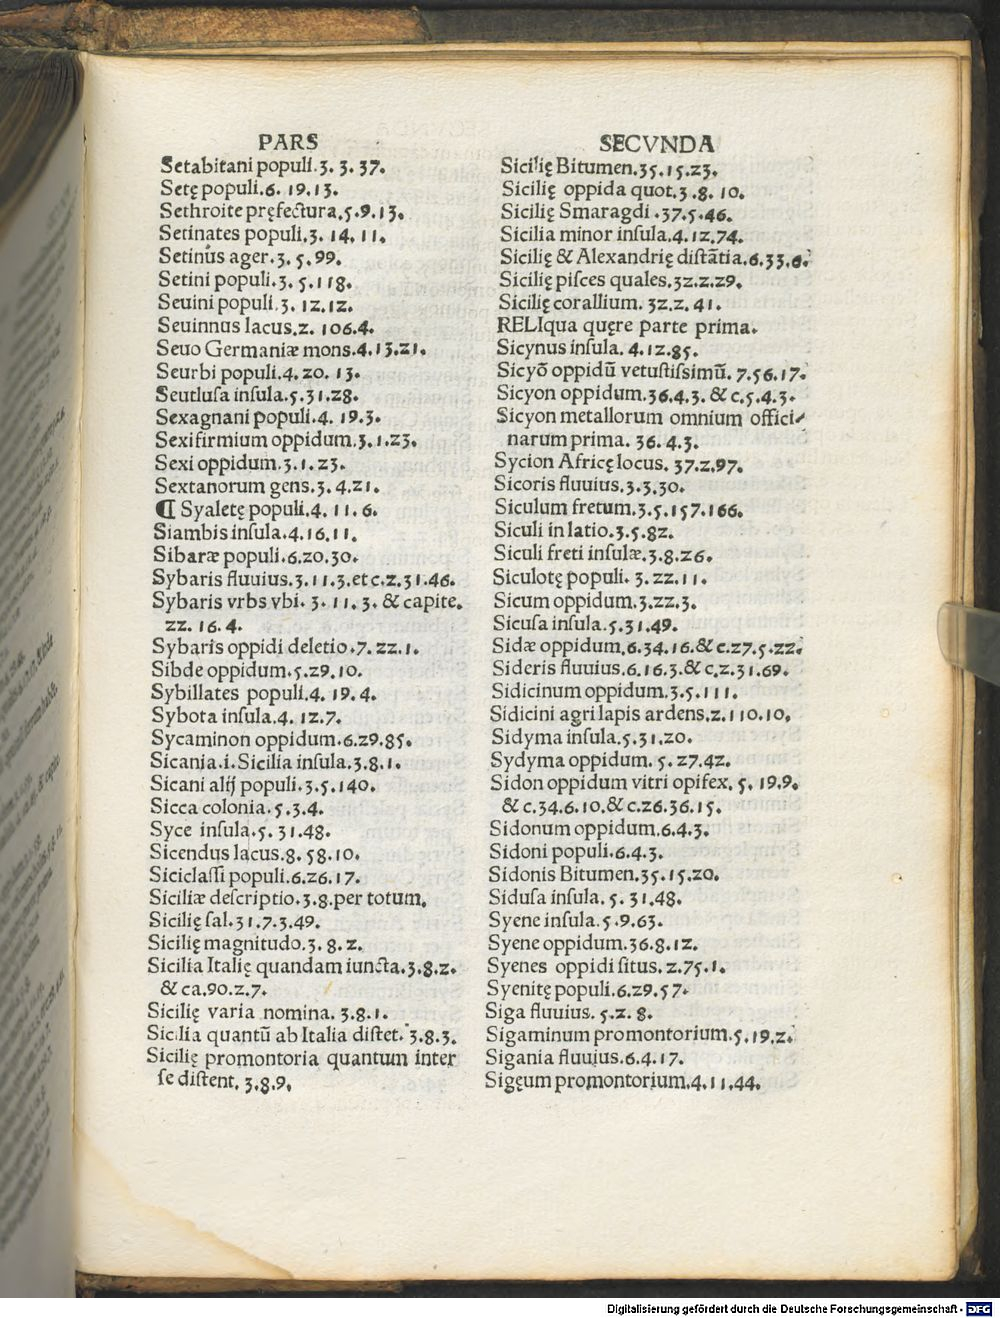 PARS
Setabitani populi.3. 3. 37.
Setę populi.6. 19.13.
Sethroite pręfectura.5.9.13.
Setinates populi.3. 14. 11.
Setinus ager.3. 5.99.
Setini populi.3. 5.118.
Seuini populi.3. 12.12.
Seuinnus lacus.2. 106.4.
Seuo Germaniæ mons.4.13.21.
Seurbi populi.4. 20. 13.
Seutluſa inſula.5.31.28.
Sexagnani populi.4. 19.3.
Sexifirmium oppidum.3.1.23.
Sexi oppidum.3.1.23.
Sextanorum gens.3.4.21.
¶ Syaletę populi.4. 11.6.
Siambis inſula.4.16.11.
Sibaræ populi.6.20.30.
Sybaris fluuius.3.11.3.et c.2.31.46.
Sybaris vrbs vbi. 3. 11. 3. & capite.
22. 16.4.
Sybaris oppidi deletio.7. 22.1.
Sibde oppidum.5.29.10.
Sybillates populi.4. 19.4.
Sybota inſula.4. 12.7.
Sycaminon oppidum.6.29.85.
Sicania.i.Sicilia inſula.3.8.1.
Sicani alij populi.3.5.140.
Sicca colonia.5.3.4.
Syce inſula.5.31.48.
Sicendus lacus.8. 58.10.
Siciclaſſi populi.6.26.17.
Siciliæ deſcriptio.3.8.per totum.
Sicilię ſal.31.7.3.49.
Sicilię magnitudo.3.8.2.
Sicilia Italię quandam iuncta.3.8.2.
& ca.90.2.7.
Sicilię varia nomina. 3.8.1.
Sicilia quantū ab Italia diſtet. 3.8.3.
Sicilię promontoria quantum inter
ſe diſtent. 3.8.9.
SECVNDA
Sicilię Bitumen.35.15.23.
Sicilię oppida quot.3.8. 10.
Sicilię Smaragdi .37.5.46.
Sicilia minor inſula.4.12.74.
Sicilię & Alexandrię diſtātia.6.33.6.
Sicilię piſces quales.32.2.29.
Sicilię corallium. 32.2. 41.
RELIqua quęre parte prima.
Sicynus inſula. 4.12.85.
Sicyō oppidū vetuſtiſsimū. 7.56.17.
Sicyon oppidum.36.4.3. & c.5.4.3.
Sicyon metallorum omnium offici⸗
narum prima. 36.4.3.
Sycion Africę locus. 37.2.97.
Sicoris fluuius.3.3.30.
Siculum fretum.3.5.157.166.
Siculi in latio.3.5.82.
Siculi freti inſulæ.3.8.26.
Siculotę populi. 3.22.11.
Sicum oppidum.3.22.3.
Sicuſa inſula.5.31.49.
Sidæ oppidum.6.34.16.& c.27.5.22.
Sideris fluuius.6.16.3.& c.2.31.69.
Sidicinum oppidum.3.5.111.
Sidicini agri lapis ardens.2.110.10.
Sidyma inſula.5.31.20.
Sydyma oppidum. 5.27.42.
Sidon oppidum vitri opifex. 5. 19.9.
& c.34.6.10.& c.26.36.15.
Sidonum oppidum.6.4.3.
Sidoni populi.6.4.3.
Sidonis Bitumen.35.15.20.
Siduſa inſula. 5. 31.48.
Syene inſula.5.9.63.
Syene oppidum.36.8.12.
Syenes oppidi ſitus. 2.75.1.
Syenitę populi.6.29.57.
Siga fluuius. 5.2. 8.
Sigaminum promontorium.5.19.2.
Sigania fluuius.6.4.17.
Sigęum promontorium.4.11.44.
Digitalisierung gefördert durch die Deutsche Forschungsgemeinschaft - DFG